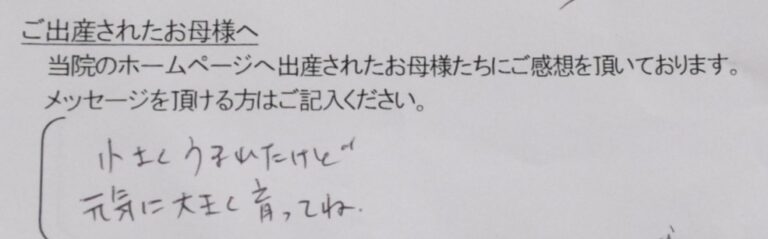 ご出産されたお母様へ
当院のホームページへ出産されたお母様たちにご感想を頂いております。
メッセージを頂ける方はご記入ください。
小さくうまれたけど
元気に大きく育ってね.